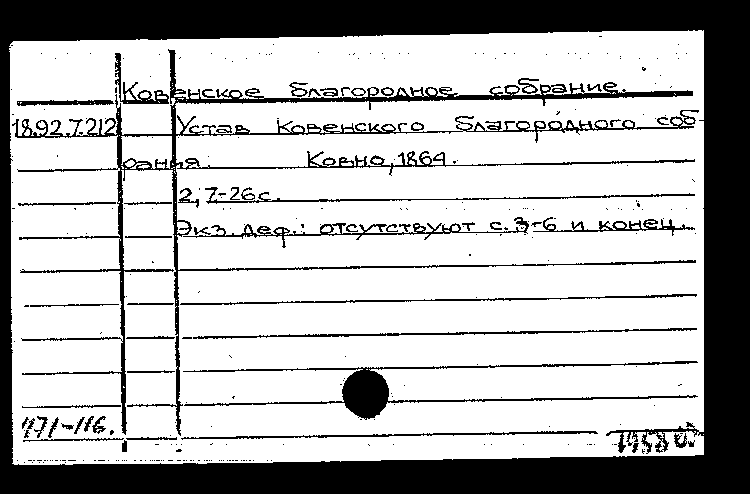 Ковенское благородное собрание.
18.92.7.212 Устав Ковенского благородного соб-
рания. Ковно, 1864.
2, 7-26 с.
Экз. деф.: отсутствуют с. 3-6 и конец.
471-116.